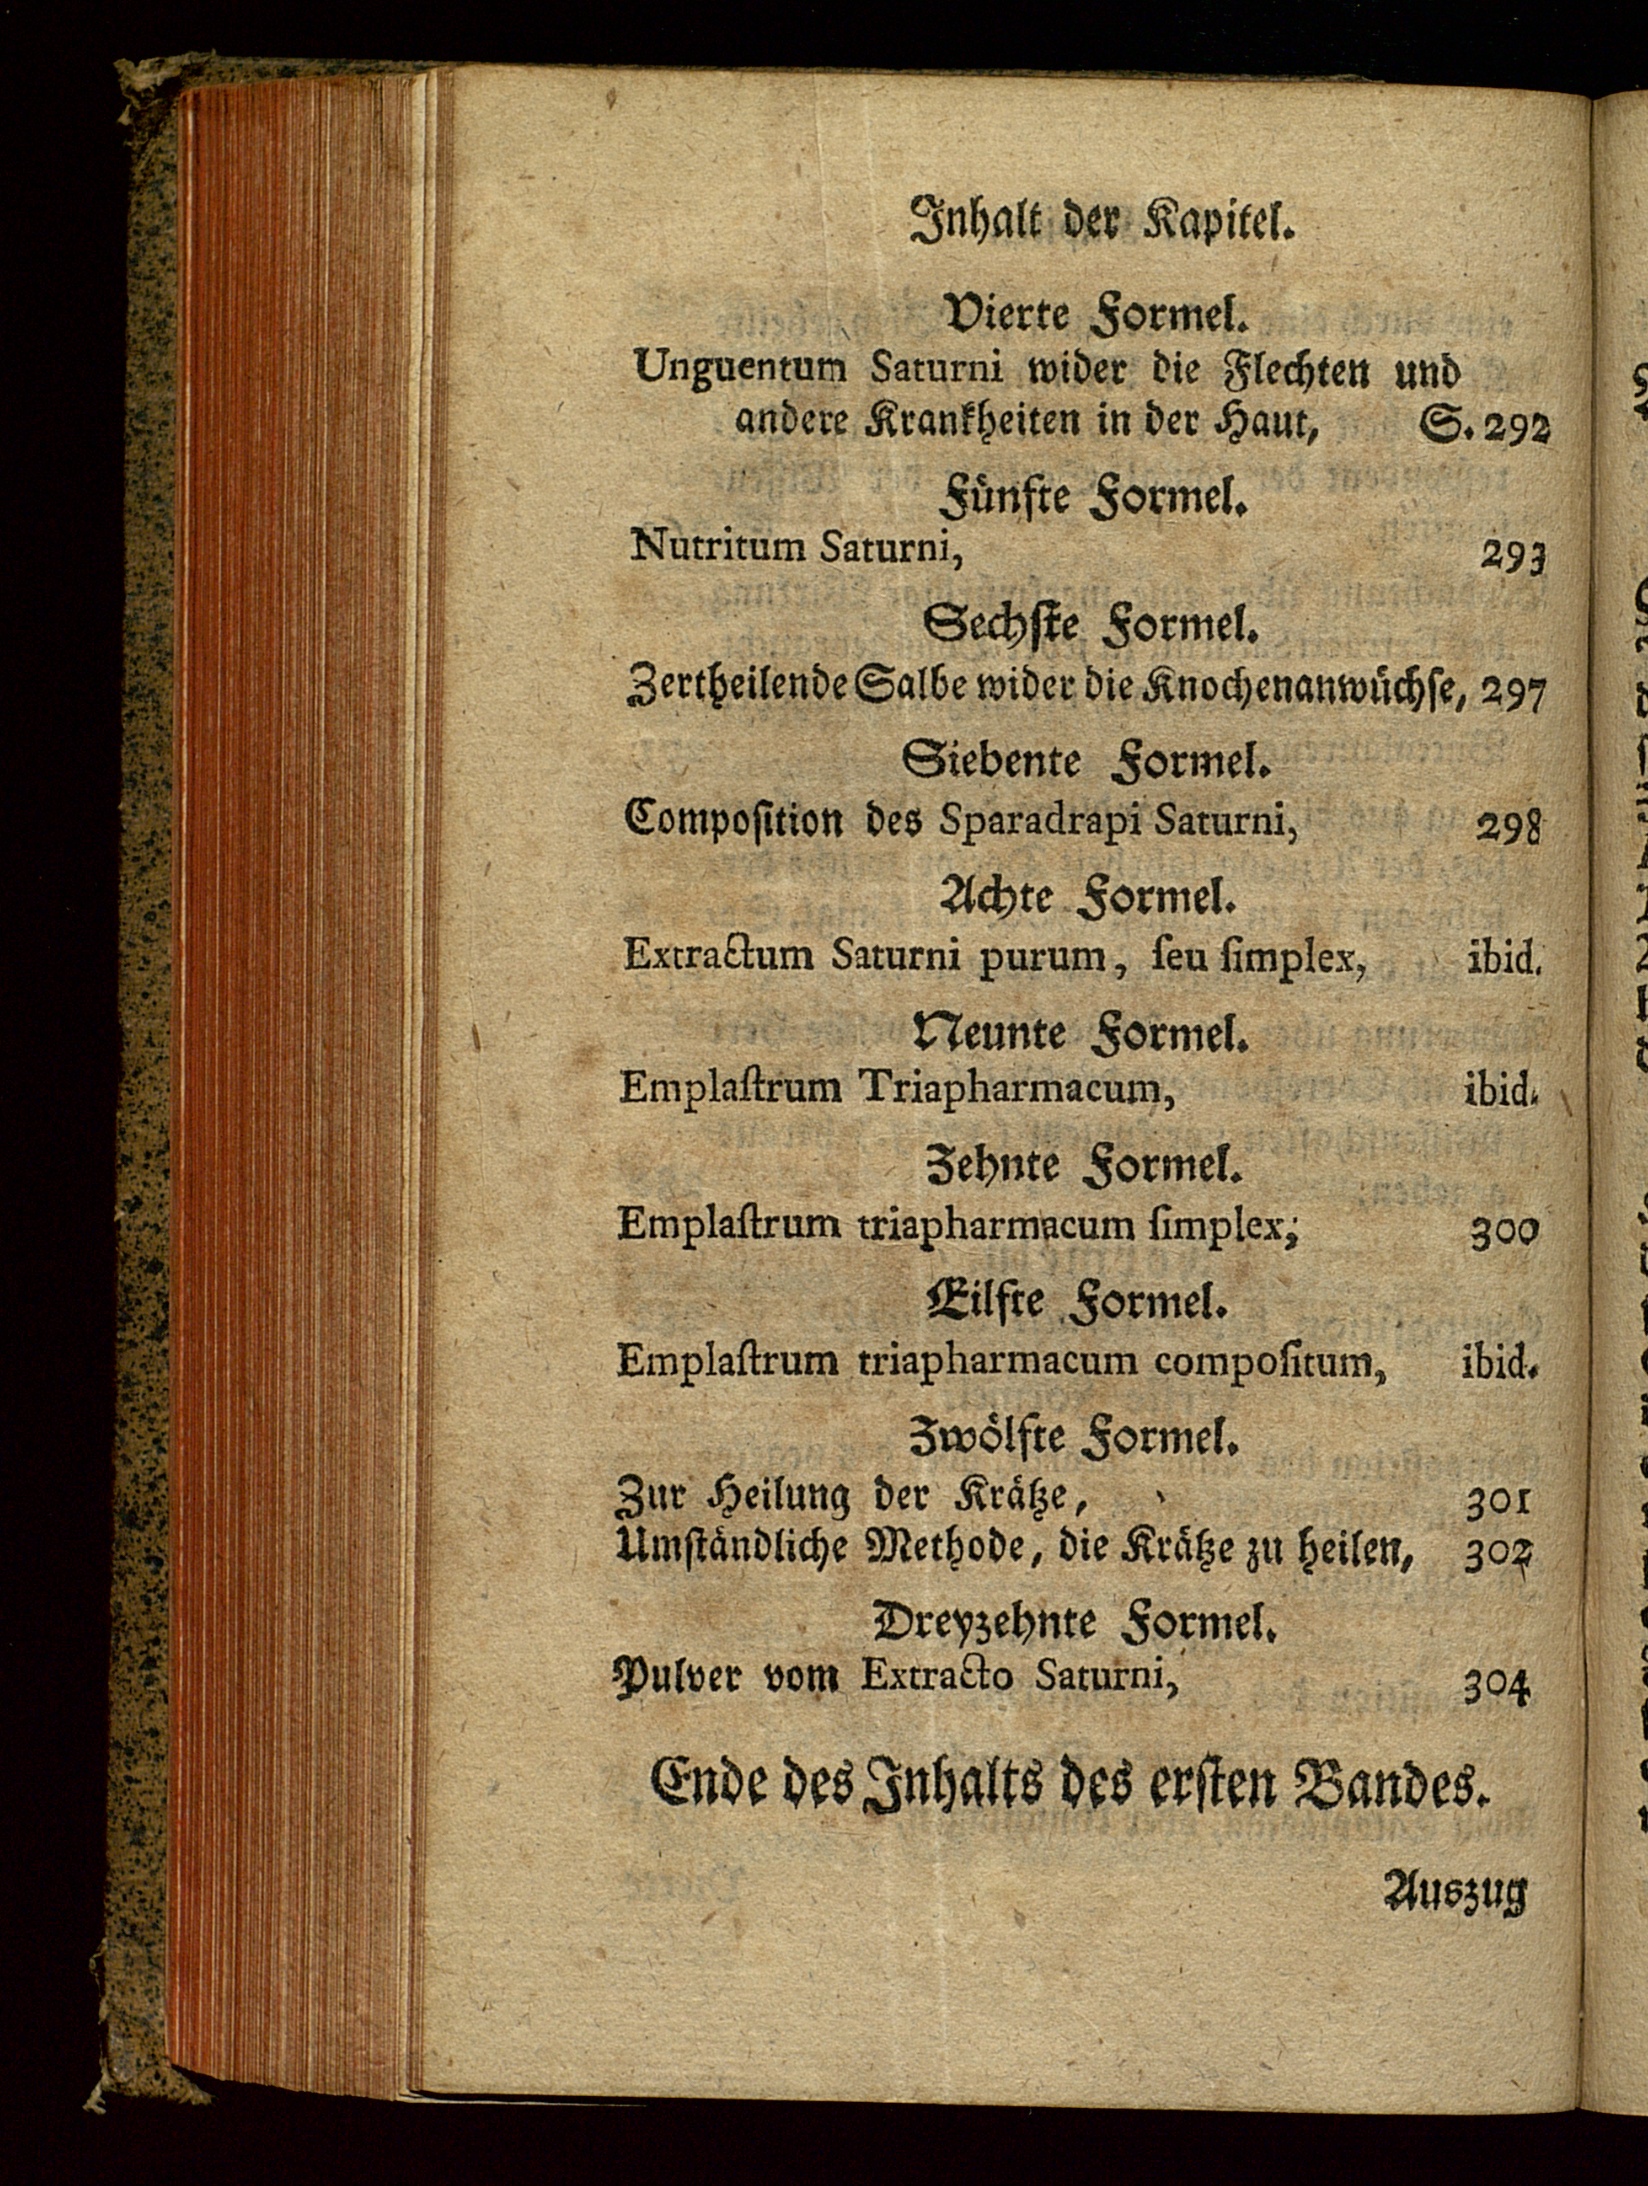 Inhalt der Kapitel.
Vierte Formel.
Unguentum Saturni wider die Flechten und
andere Krankheiten in der Haut, S. 292
Fünfte Formel.
Nutritum Saturni, 293
Sechſte Formel.
Zertheilende Salbe wider die Knochenanwüchſe, 297
Siebente Formel.
Compoſition des Sparadrapi Saturni, 298
Achte Formel.
Extractum Saturni purum, ſeu ſimplex, ibid.
Neunte Formel.
Emplaſtrum Triapharmacum, ibid.
Zehnte Formel.
Emplaſtrum triapharmacum ſimplex; 300
Eilfte Formel.
Emplaſtrum triapharmacum compoſitum, ibid.
Zwölfte Formel.
Zur Heilung der Krätze, 301
Umſtändliche Methode, die Krätze zu heilen, 302
Dreyzehnte Formel.
Pulver vom Extracto Saturni, 304
Ende des Inhalts des erſten Bandes.
Auszug